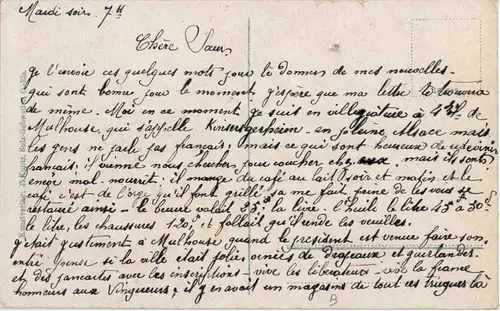 Mardi soir 7 H
Chère Sœur
Je t'envoie ces quelques mots pour te donner de mes nouvelles.
qui sont bonne pour le moment j'espère que ma lettre te trouvera
de même. Moi en ce moment je suis en villégiature à 4 K de
Mulhouse, qui s'appelle en pleine Alsace mais
les gens ne parle pas français; mais ce qui sont heureux de redevenir
français; il vienne nous chercher pour coucher chez eux mais ils sont
encor mal nourrit; il mange du café au lait soir et matin et le
café c'est de l'orge qu'il font grillé sa me fait peine de les vous se
restauré ainsi le beurre valait 25 la livre l'huile le litre 45 à 50
le litre, les chaussures 120; et fallait qu'il rende les vieilles.
j'était justement à Mulhouse quand le président est venue faire son
entré pense si la ville était jolie, ornées de drapeaux et guirlandes
et des pancartes avec les inscriptions vive les libérateurs vive la france
honneurs aux Vingueurs; il y en avait un magasins de tout ces truques là